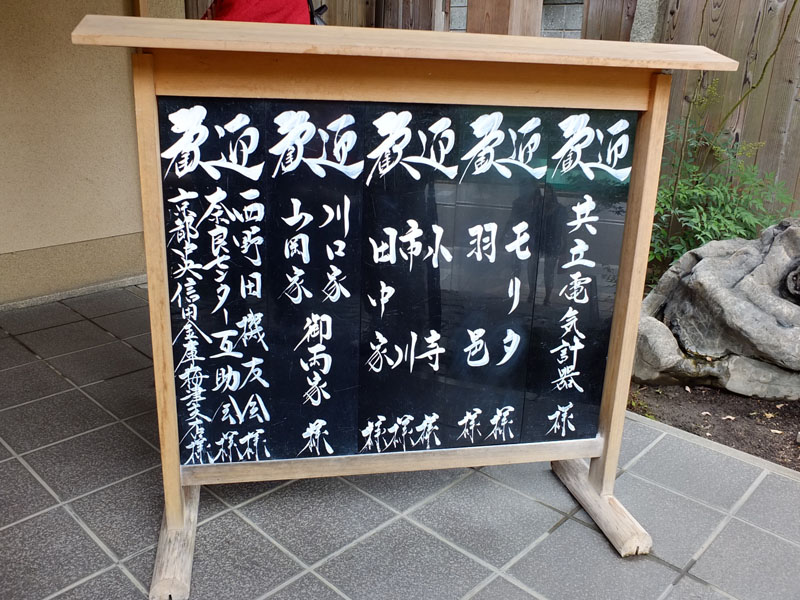 歓迎
共立電気計器 様
歓迎
モリタ 様
羽邑 様
歓迎
小寺 様
市川 様
田中家 様
歓迎
川口家
山岡家
御両家 様
歓迎
西野田機友会 様
奈良センター互助会 様
京都中央信用金庫梅津支店 様